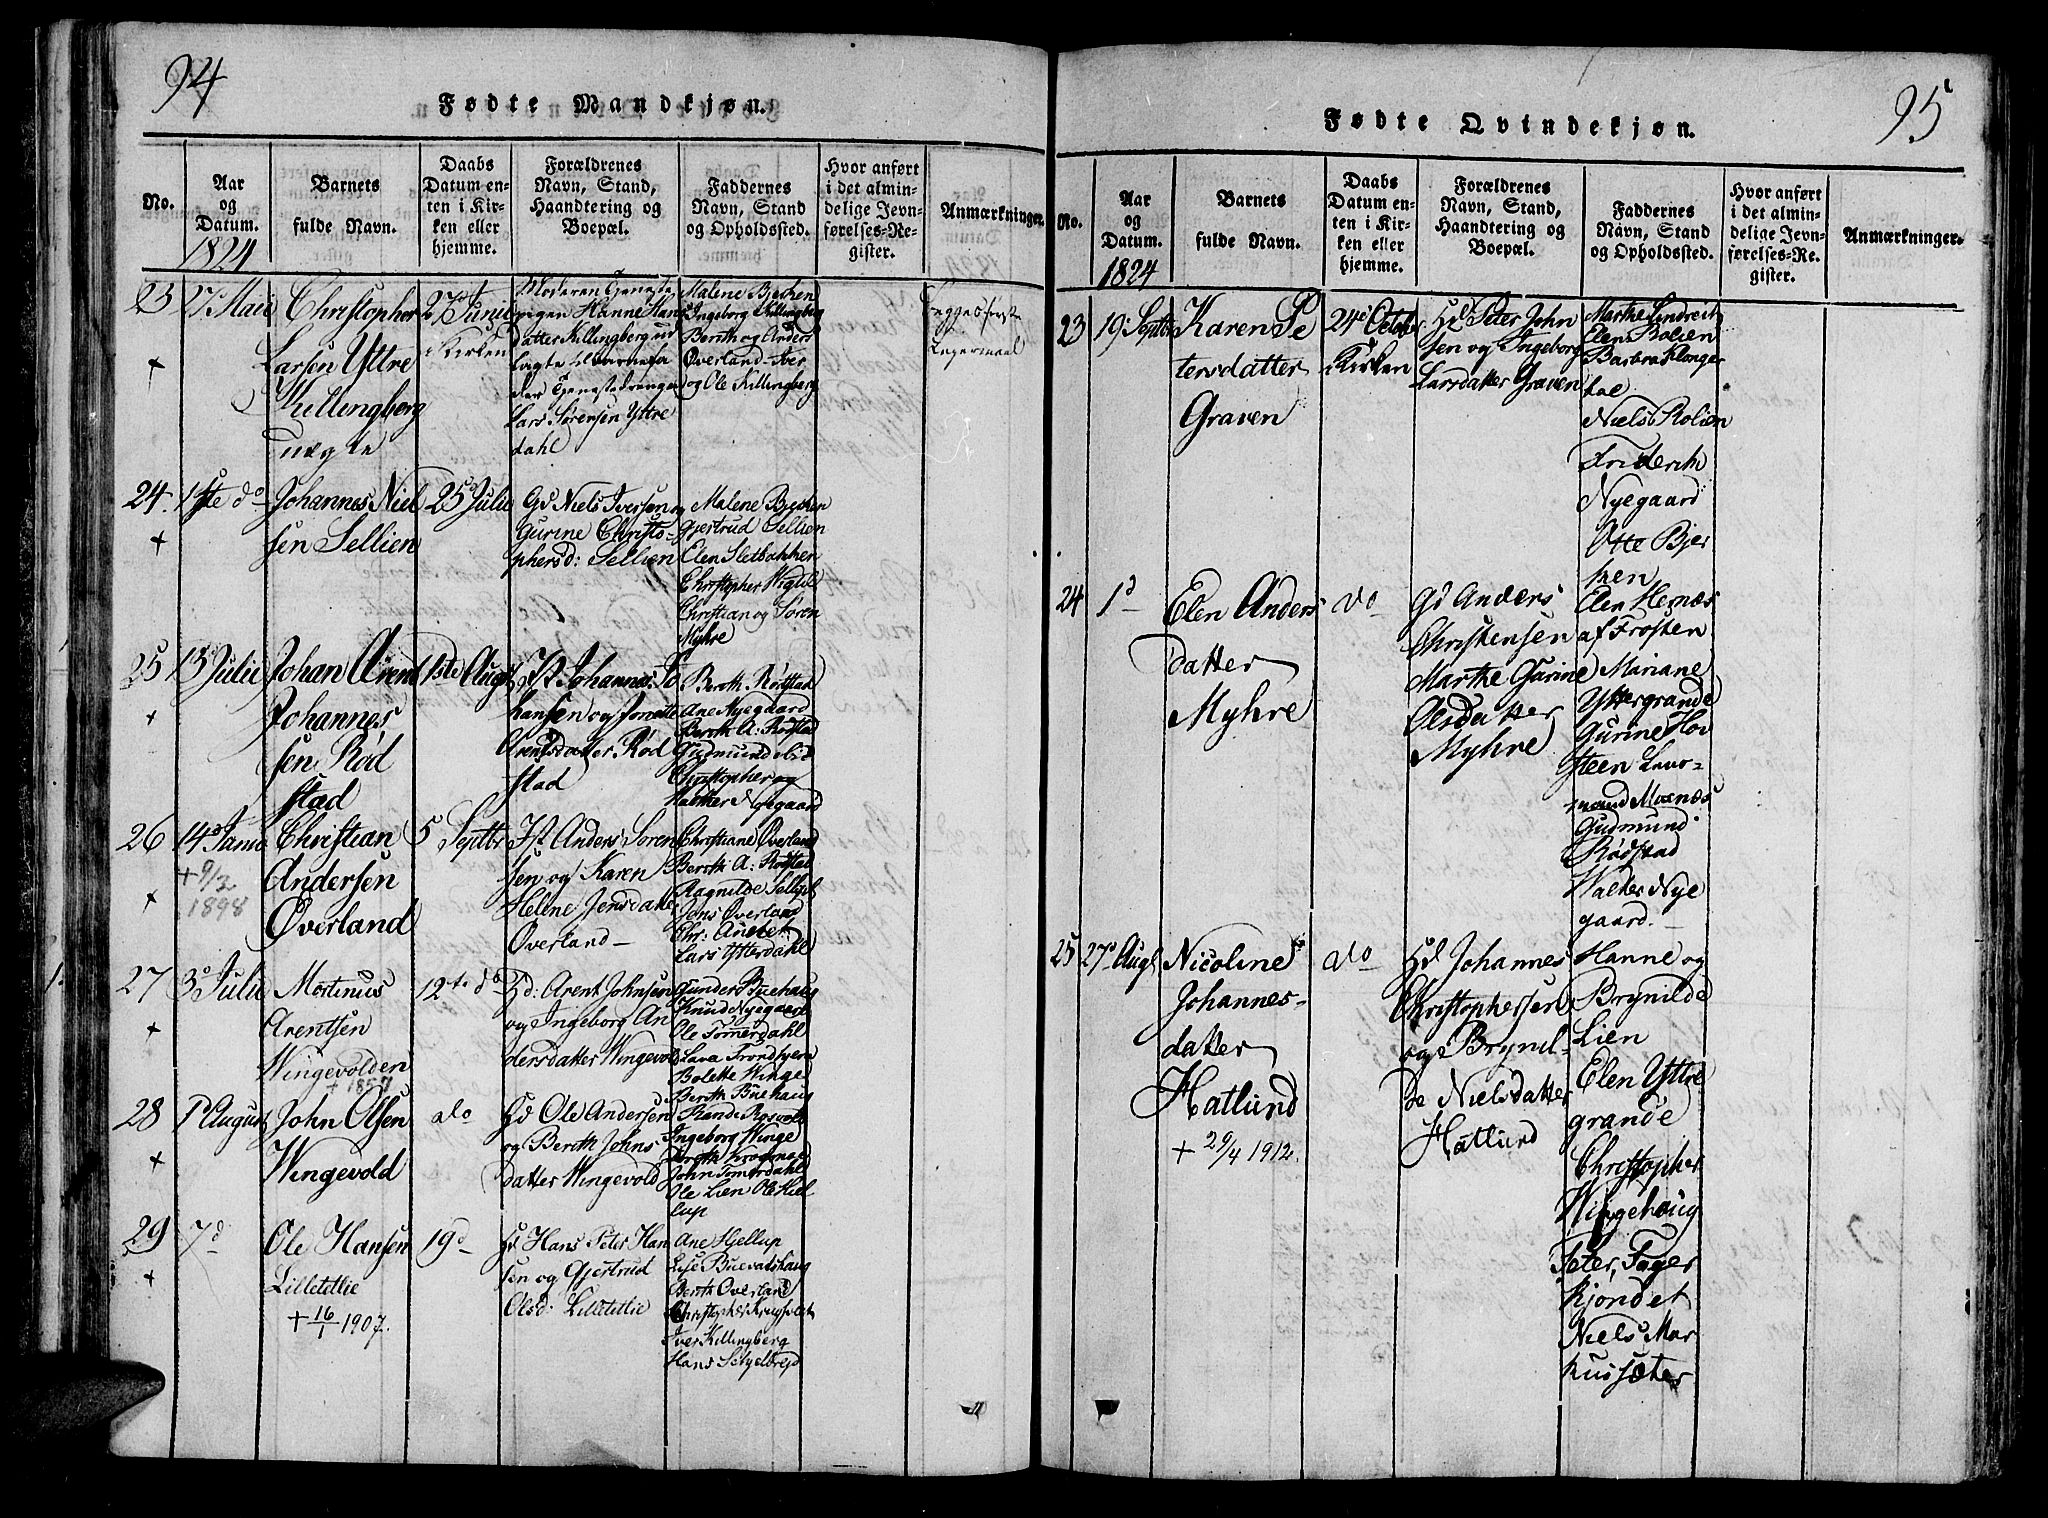 94
Fødte Mandkjøn.
No.
Aar
og
Datum.
1824
Barnets
fulde Navn.
Daabs
Datum en-
ten i Kir-
ken eller
hjemme.
Forældrenes
Navn, Stand,
Haandtering og
Boepæl.
Faddernes
Navn, Stand
og Opholdssted.
Hvor anført
i det almin-
delige Jevn-
førelses-Re-
gister.
Anmærkninger.
23
27 Maii
Christopher
Larsen Yttre
Killingberg
uægte
27d Junii
i Kirken
Moderen Tjeneste
pigen Hanne Hans
datter Killingberg ud
lagte Barnefa
der Tjenestedrengen
Lars Sørensen Yttre
dahl
Malene Bjerken
Ingeborg Killingberg
Bereth og Anders
Overland Iver
og Ole Killingberg
Begges første
Leyermaal
24
1ste do
Johannes Niel
sen Sellien
25 Julii
Gd Niels Iversen og
Gurine Christo-
phersd: Sellien
Malene Bjerken
Gjertrud Sellien
Elen Sletbakken
Christopher
Christian og Søren
Myhre
25
13 Julii
Johan Arent
Johannes
sen Rød
stad
1ste Augst
Johannes Jo
hansen og
Arentsdatter Rød
stad
Bereth Rødstad
Ane Nyegaard
Bereth A: Rødstad
Gudmund
Christopher og
Walther Nyegaard
26
14d
+ 9/2
1898
Christian
Andersen
Overland
5 Septbr
Anders Søren
sen og Karen
Helene Jensdatter
Overland
Christiane Overland
Bereth A: Rødstad
Ragnilde
Jens Overland
Chr:
Lars Ytterdahl
27
3d Julii
Mortinus
Arentsen
Wingevolden
+ 1857
12te do
Gd: Arent Johnsen
og Ingeborg An
dersdatter Wingevold
Gunder Buehaug
Knud Nyegaard
Ole Tomerdahl
Bolette Winge
Bereth Buehaug
28
1d August
John Olsen
Wingevold
do
Gd Ole Andersen
og Bereth Johns
datter Wingevold
Ingeborg Winge
John Tomerdahl
Ole Lien Ole Hiel
lup
29
7d
Ole Hansen
Lilletitlie
+ 16/1 1907.
19d
Gd Hans Peter Han
sen og Gjertrud
Olsd: Lilletitlie
Ane Hjellup
Lise
Bereth Overland
Iver Killingberg
Hans
95
Fødte Qvindekjøn.
No.
Aar
og
Datum.
1824
Barnets
fulde Navn.
Daabs
Datum en-
ten i Kir-
ken eller
hjemme.
Forældrenes
Navn, Stand,
Haandtering og
Boepæl.
Faddernes
Navn, Stand
og Opholdssted.
Hvor anført
i det almin-
delige Jevn-
førelses-Re-
gister.
Anmærkninger.
23
19 Septbr
Karen Pe
tersdatter
Graven
24d Octobr
Kirken
Gd Peter John
sen og Ingeborg
Larsdatter Graven
Marthe
Elen Rolien
Barbra
Niels Rolien
Friderich
Nyegaard
Otte Bjer
ken
24
1d
Elen Anders
datter
Myhre
do
Gd Anders
Christensen
Marthe Gurine
Olsdatter
Myhre
Elen Hernæs
af Frosten
Mariane
Yttergrande
Gurine Hov
steen
Gudmund
Rødstad
Walter Nye
gaard.
25
27d Augst
Nicoline
Johannes-
datter
Hatlund
+ 29/4 1912.
do
Gd Johannes
Christophersen
og Brynil-
de Nielsdatter
Hatlund
Hanne og
Brynilde
Lien
Elen Yttre
grande
Christopher
Wingehaug
Peter Fager
kjondet
Niels Mar
kussæter